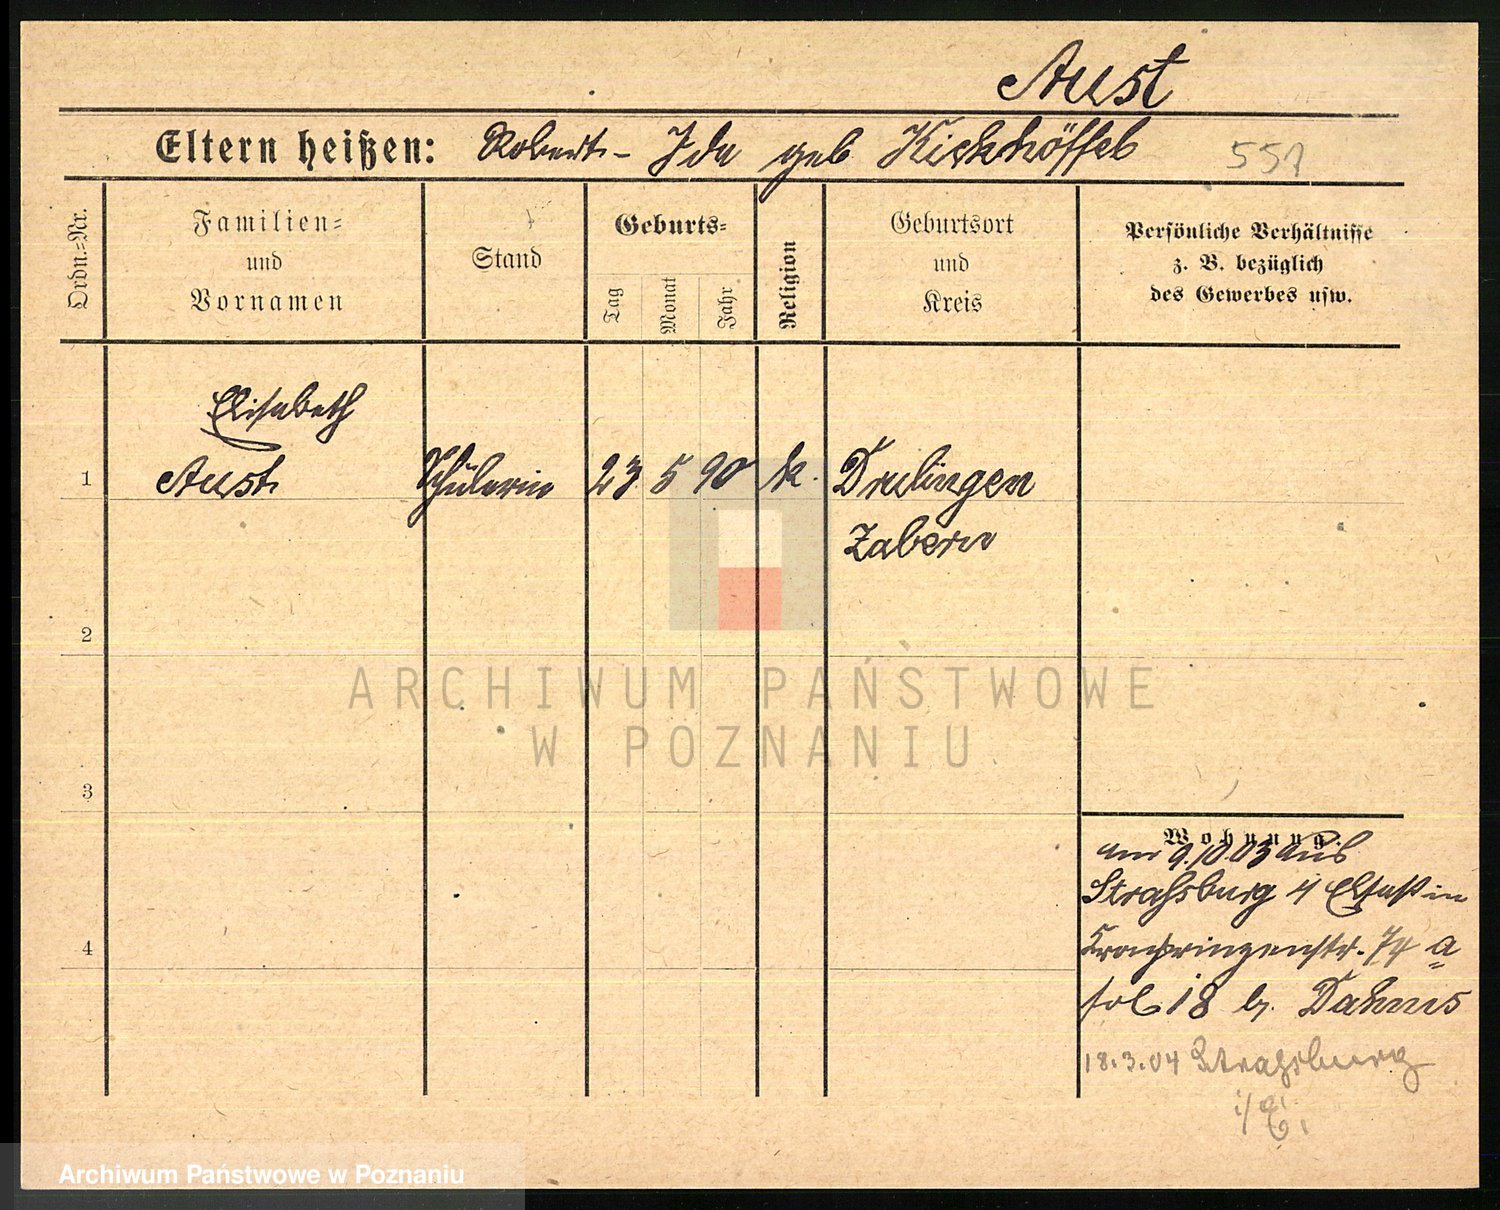 Aust
Eltern heißen: Robert - Ida geb Kickhöffel 551
Ordn.=Nr.
Familien=
und
Vornamen
Stand
Geburts=
Tag
Monat
Jahr
Religion
Geburtsort
und
Kreis
Persönliche Verhältnisse
z. B. bezüglich
des Gewerbes usw.
Elisabeth
1 Aust Schülerin 23 5 90 k. Drulingen
Zabern
2
ARCHIWUM PAŃSTWOWE
W POZNANIU
3
Wohnung.
am 9.10.03 aus
Strassburg i/ Elsaß in
Kronprinzenstr. 74 a
18 b. Dahms
4
18.3.04 Strassburg
i/E.
Archiwum Państwowe w Poznaniu